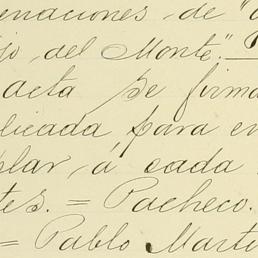 enaciones de "
jo del Monte".
acta se firma
licada, para en
plar, á cada
tes. = Pacheco.
= Pablo Marti